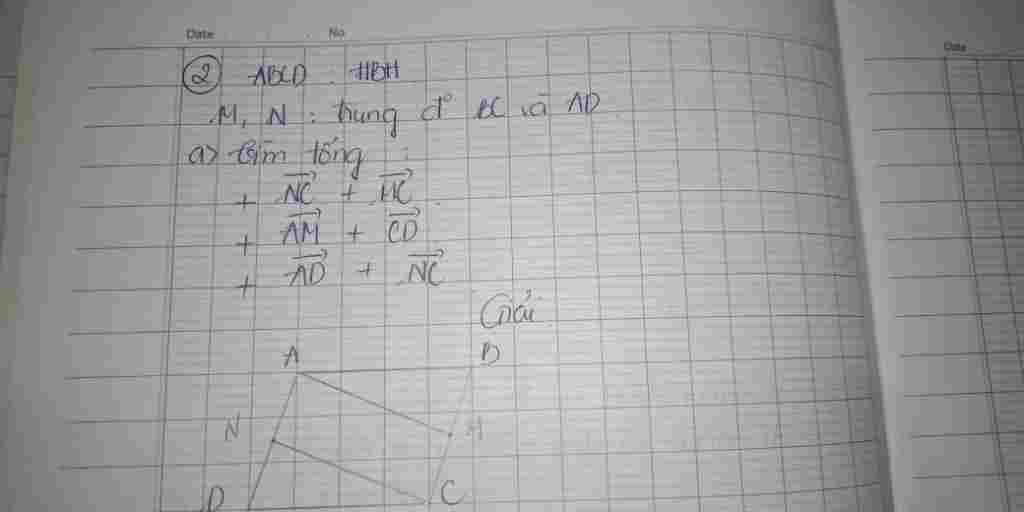 Date No
Date
② ABCD : HBH
M, N : trung đ° BC và AD
a) tìm tổng :
+ NC + MC
+ AM + CD
+ AD + NC
Giải
A B
N M
D C